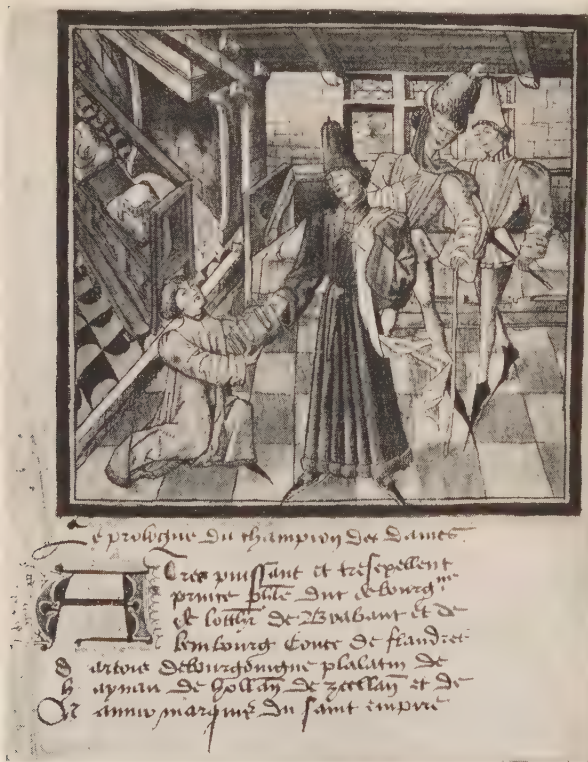 Le prologue du champion des dames
A Tres puissant et tresexellent
prince phle duc de bourgne
de lothr de Brabant et de
lembourg Conte de flandres
dartois debourgoingne palatin de
haynau de hollan de zeellan et de
Namur marquis du saint empire